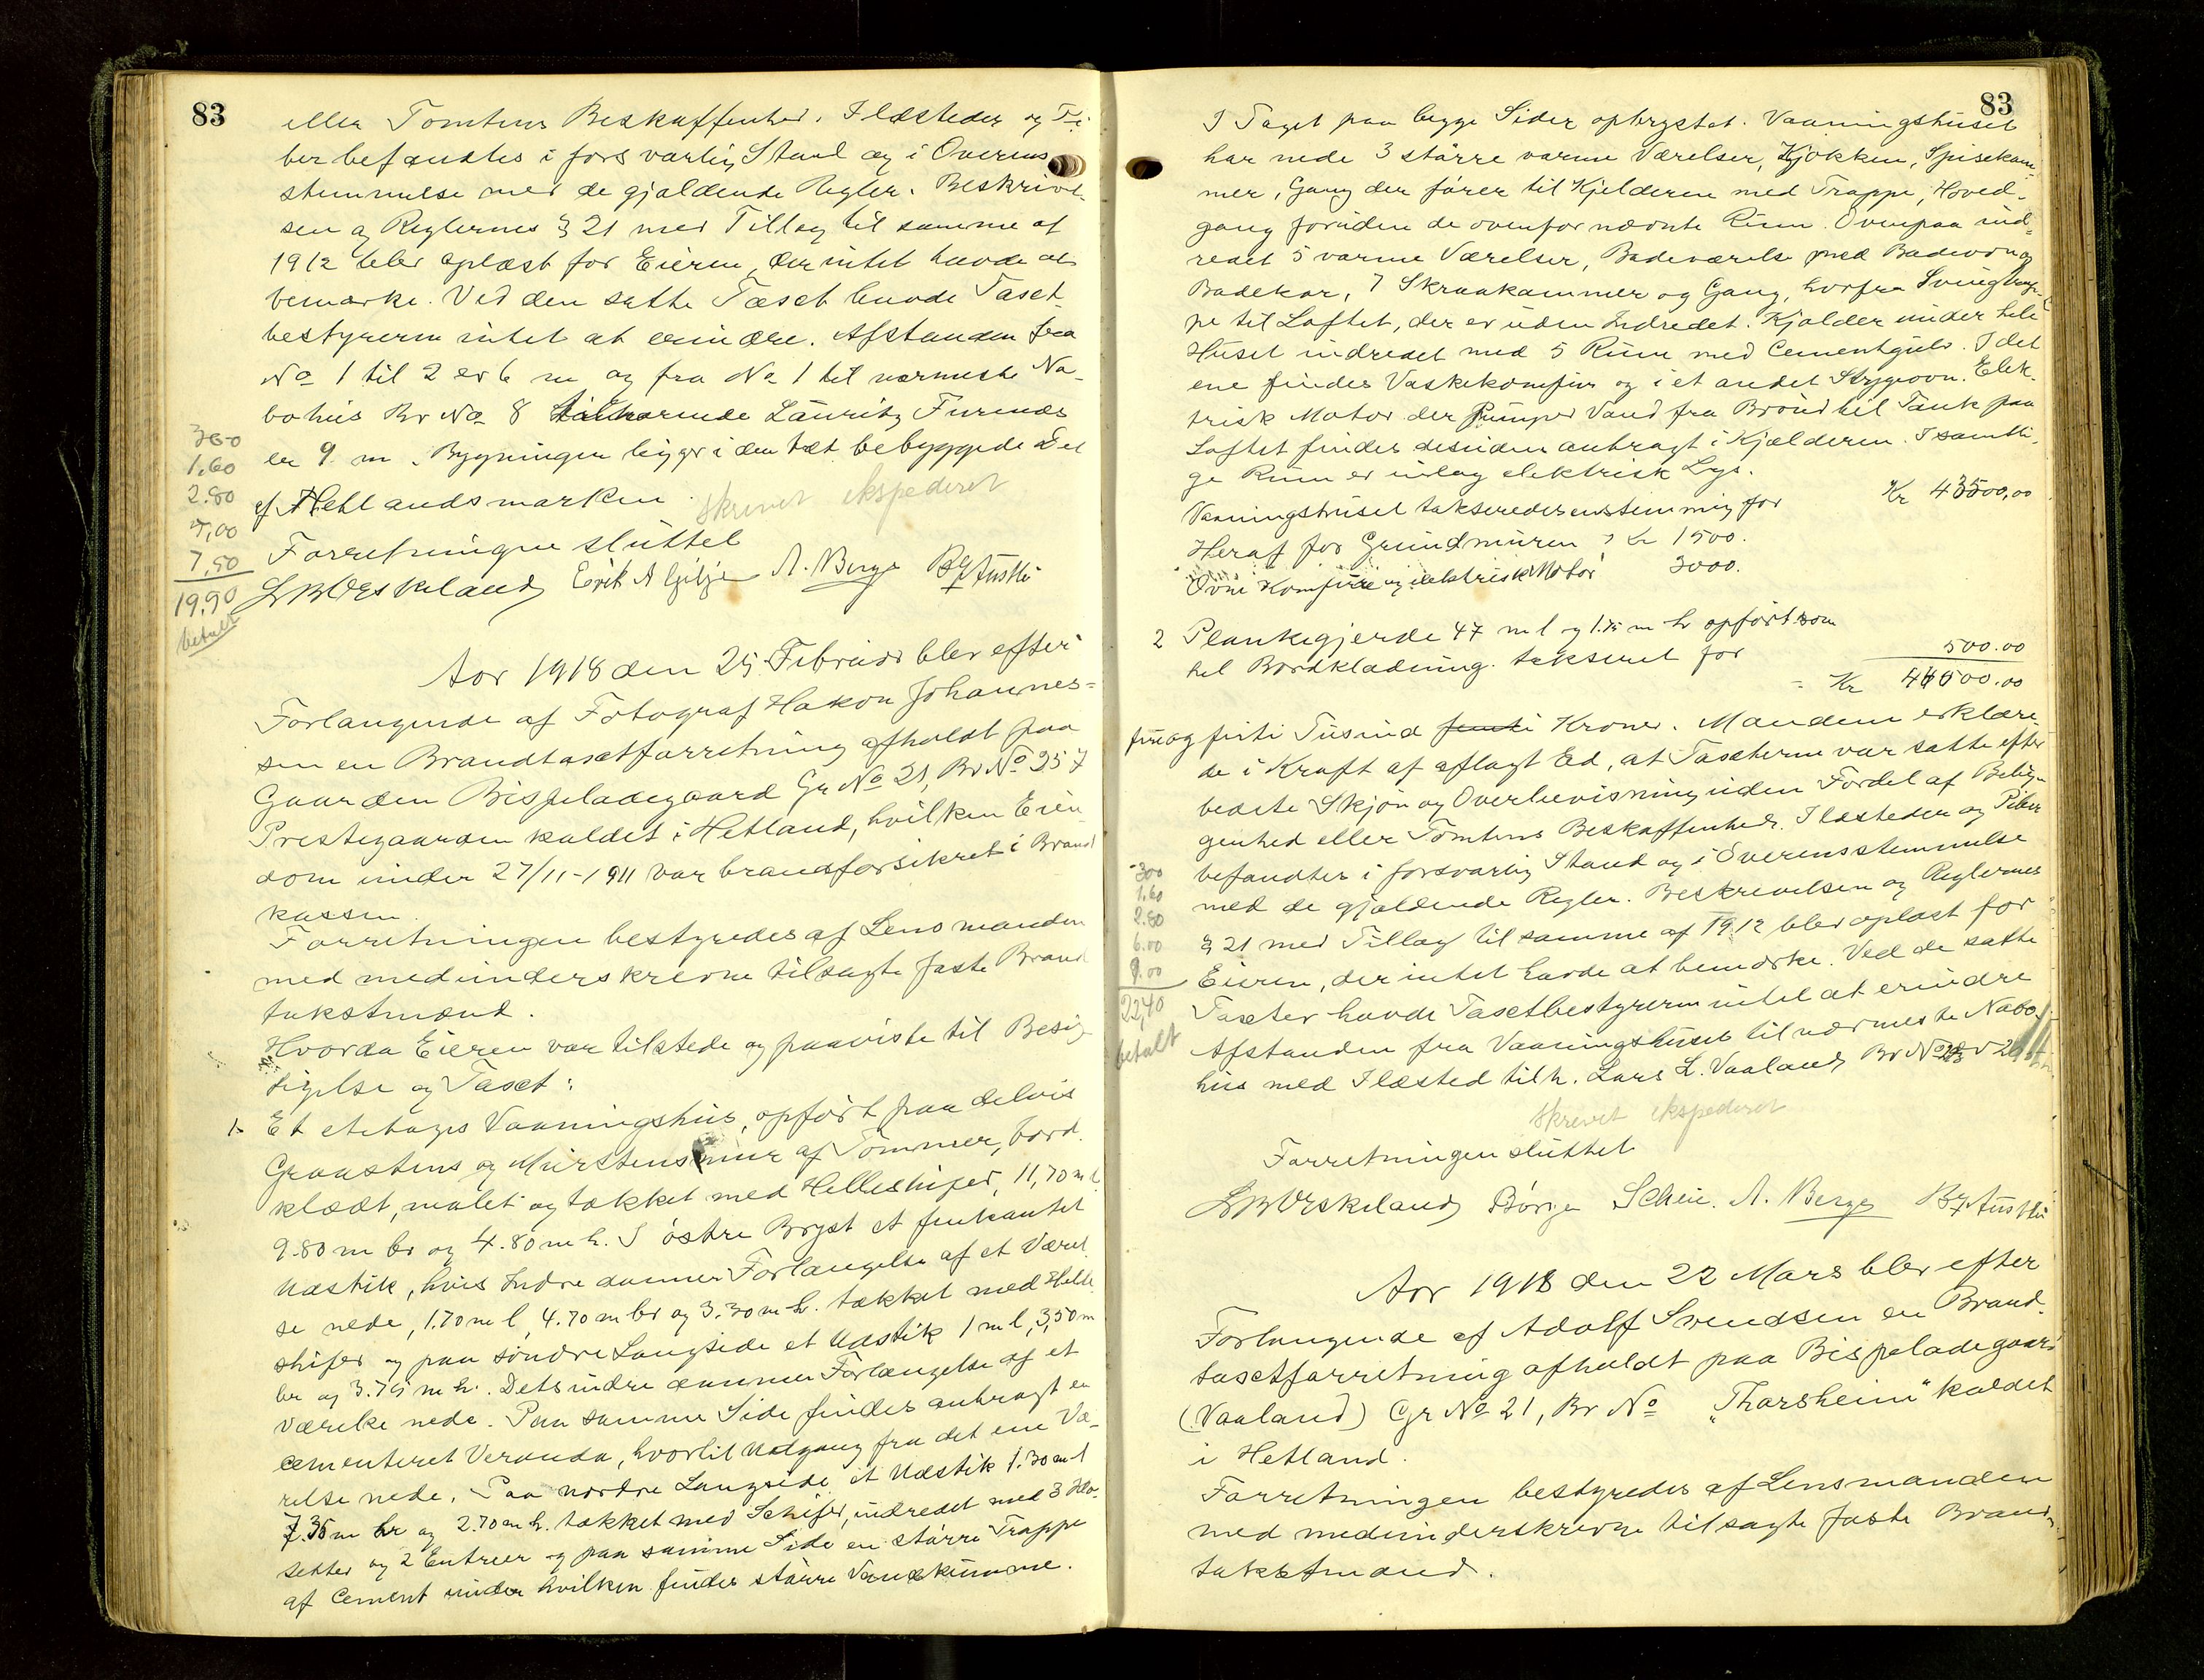 83
eller Tomtens Beskaffenhed. Ildsteder og Pi-
ber befandtes i forsvarlig Stand og i Overens
stemmelse med de gjældende Regler. Beskrivel-
sen og Reglernes § 21 med Tillæg til samme af
1912 blev oplæst for Eieren, der intet havde at
bemærke. Ved den satte Taxt havde Taxt-
bestyreren intet at erindre. Afstanden fra
No 1 til 2 er 6 m og fra No 1 til nærmeste Na-
bohus Br No 8 tilhørende Lauritz Furenæs
er 9 m. Bygningen ligger i den tæt bebyggede Del
af Hetlandsmarken.
skrevet ekspederet
Forretningen sluttet
Eivik A Gilje A. Berge
3.00
1.60
2.80
7,00
7,50
19.90
betalt
Aar 1918 den 25 Februar blev efter
Forlangende af Fotograf Hakon Johannes-
sen en Brandtaxtforretning afholdt paa
Gaarden Bispeladegaard Gr No 21, Br No 257
Prestegaarden kaldet i Hetland, hvilken Eien
dom under 27/11-1911 var brandforsikret i Brand
kassen.
Forretningen bestyredes af Lensmanden
med medunderskrevne tilsagte faste Brand
takstmænd.
Hvorda Eieren var tilstede og paaviste til Besig-
tigelse og Taxt:
1. Et etetages Vaaningshus, opført paa delvis
Graastens og Murstensmur af Tømmer, bord-
klædt, malet og tækket med Helleskifer, 11,70 m l
9.80 m br og 4.80 m h. I østre Bryst et femkantet
Udstik, hvis Indre danner Forlængelse af et Værel
se nede, 1.70 m l, 4.70 m br og 3.30 m h. tækket med Helle
skifer og paa søndre Langside et Udstik 1 m l, 3,50 m
br og 3.75 m h. Dets indre danner Forlængelse af et
Værelse nede. Paa samme Side findes anbragt en
cementeret Veranda, hvortil Udgang fra det ene Væ-
relse nede. Paa nordre Langside et Udstik 1.30 m l
7.35 m br og 2.70 m h. tækket med Schifer, indredet med 3 Klo-
setter og 2 Entreer og paa samme Side en større Trappe
af Cement under hvilken findes større Vandkumme.
83
I Taget paa begge Sider opbrystet. Vaaningshuset
har nede 3 større varme Værelser, Kjøkken, Spisekam-
mer, Gang der fører til Kjelderen med Trappe, Hoved-
gang foruden de ovenfor nævnte Rum. Ovenpaa ind-
redet 5 varme Værelser, Badeværelse med Badeovn og
Badekar, 7 Skraakammer og Gang, hvorfra Svingtrap-
pe til Loftet, der er uden Indredet. Kjælder under hele
Huset indredet med 5 Rum med Cementgulv. I det
ene findes Vaskekomfur og i et andet Strygeovn. Elek-
trisk Motor der Pumper Vand fra Brønd til Tank paa
Loftet findes desuden anbragt i Kjælderen. I samtli-
ge Rum er inlag elektrisk Lys.
Vaaningshuset takseredes enstemmig for Kr 43500,00
Heraf for Grundmuren : Kr 1500.
Ovne Komfure og elektrisk Motor 3000.
2 Plankegjerde 47 m l og 1.75 m h opført som
hel Bordklædning. takseret for 500.00
= Kr 44000.00
fire og firti Tusind Kroner. Mændene erklære-
de i Kraft af aflagt Ed, at Taxterne var satte efter
bedste Skjøn og Overbevisning uden Fordel af Belig-
genhed eller Tomtens Beskaffenhed. Ildsteder og Piber
befandtes i forsvarlig Stand og i Overensstemmelse
med de gjældende Regler. Beskrivelsen og Reglernes
§ 21 med Tillæg til samme af 1912 blev oplæst for
Eieren, der intet havde at bemærke. Ved de satte
Taxter havde Taxtbestyreren intet at erindre
Afstanden fra Vaaningshuset til nærmeste Nabo-
hus med Ildsted tilh. Lars L. Vaaland Br No
3.00
1.60
2.80
6.00
9.00
22,40
betalt
skrevet ekspederet
Forretningen sluttet
Børge Scheie. A. Berge
Aar 1918 den 22 Mars blev efter
Forlangende af Adolf Svendsen en Brand-
taxtforretning afholdt paa Bispeladegaard
(Vaaland) Gr No 21, Br No „Thorsheim" kaldet
i Hetland.
Forretningen bestyredes af Lensmanden
med medunderskrevne tilsagte faste Brand-
takstmænd.